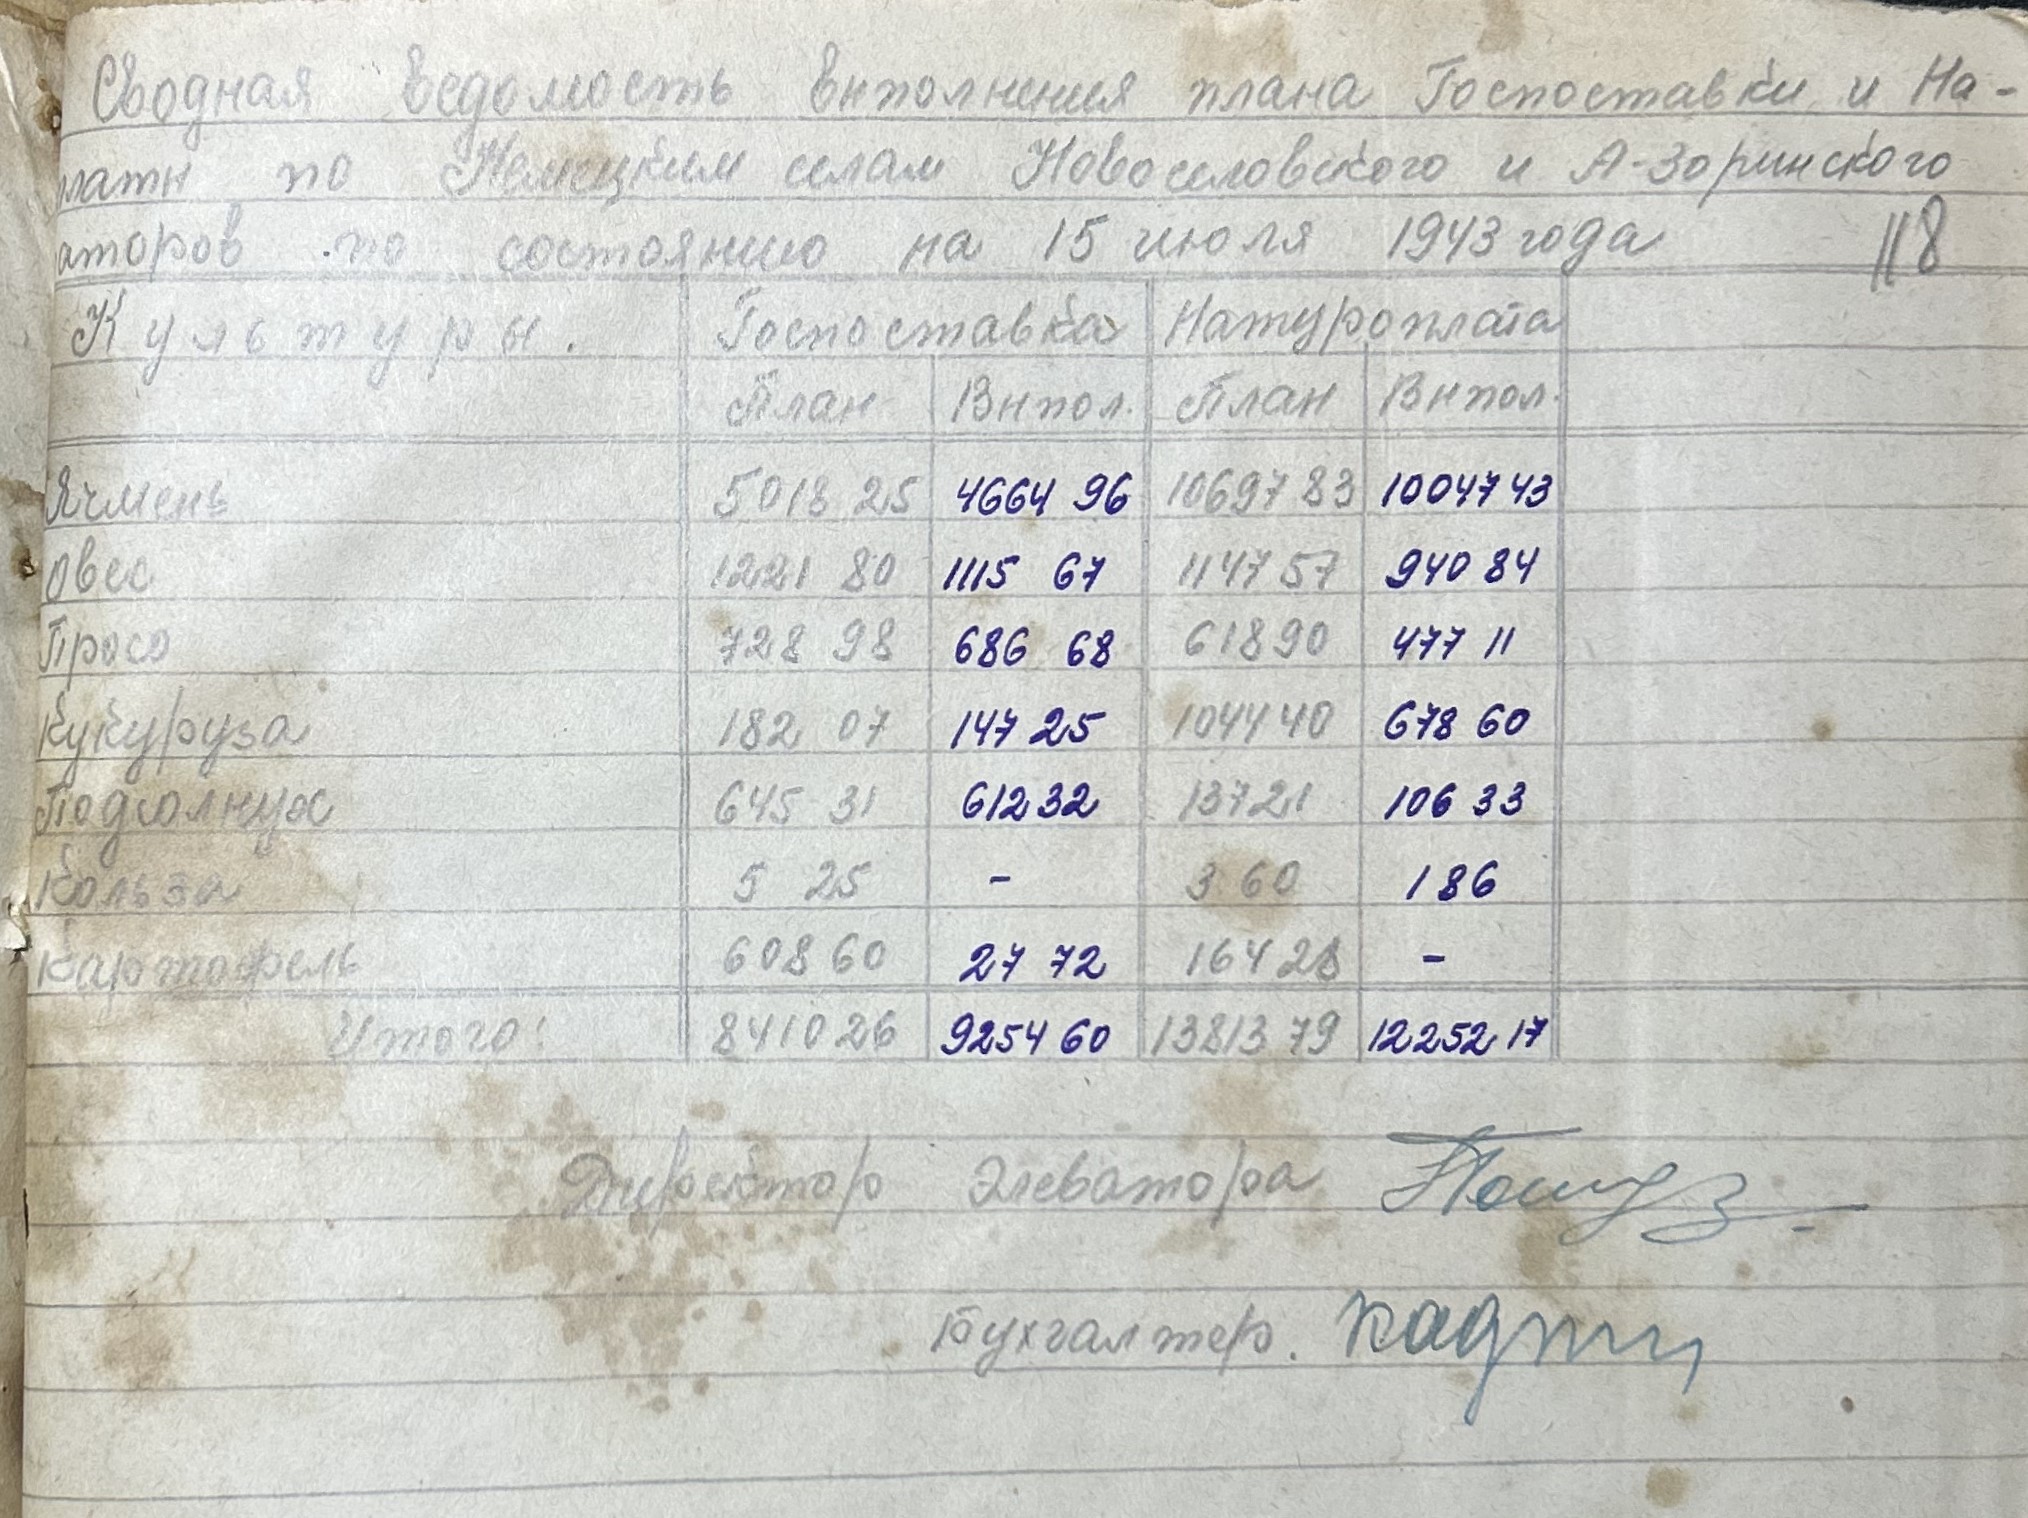 Сводная ведомость выполнения плана Госпоставки и На-
платы по Немецким селам Новоселовского и А-Зоринского
аторов по состоянию на 15 июля 1943 года 118
Культуры. Госпоставка Натуроплата
План Выпол. План Выпол.
Ячмень 5018 25 4664 96 10697 83 10047 43
Овес 1221 80 1115 67 1147 57 940 84
Просо 728 98 686 68 618 90 477 11
Кукуруза 182 07 147 25 1044 40 678 60
Подсолнух 645 31 612 32 137 21 106 33
Кользa 5 25 - 3 60 1 86
Картофель 608 60 27 72 164 28 -
Итого: 8410 26 9254 60 13813 79 12252 17
Директор Элеватора
Бухгалтер.